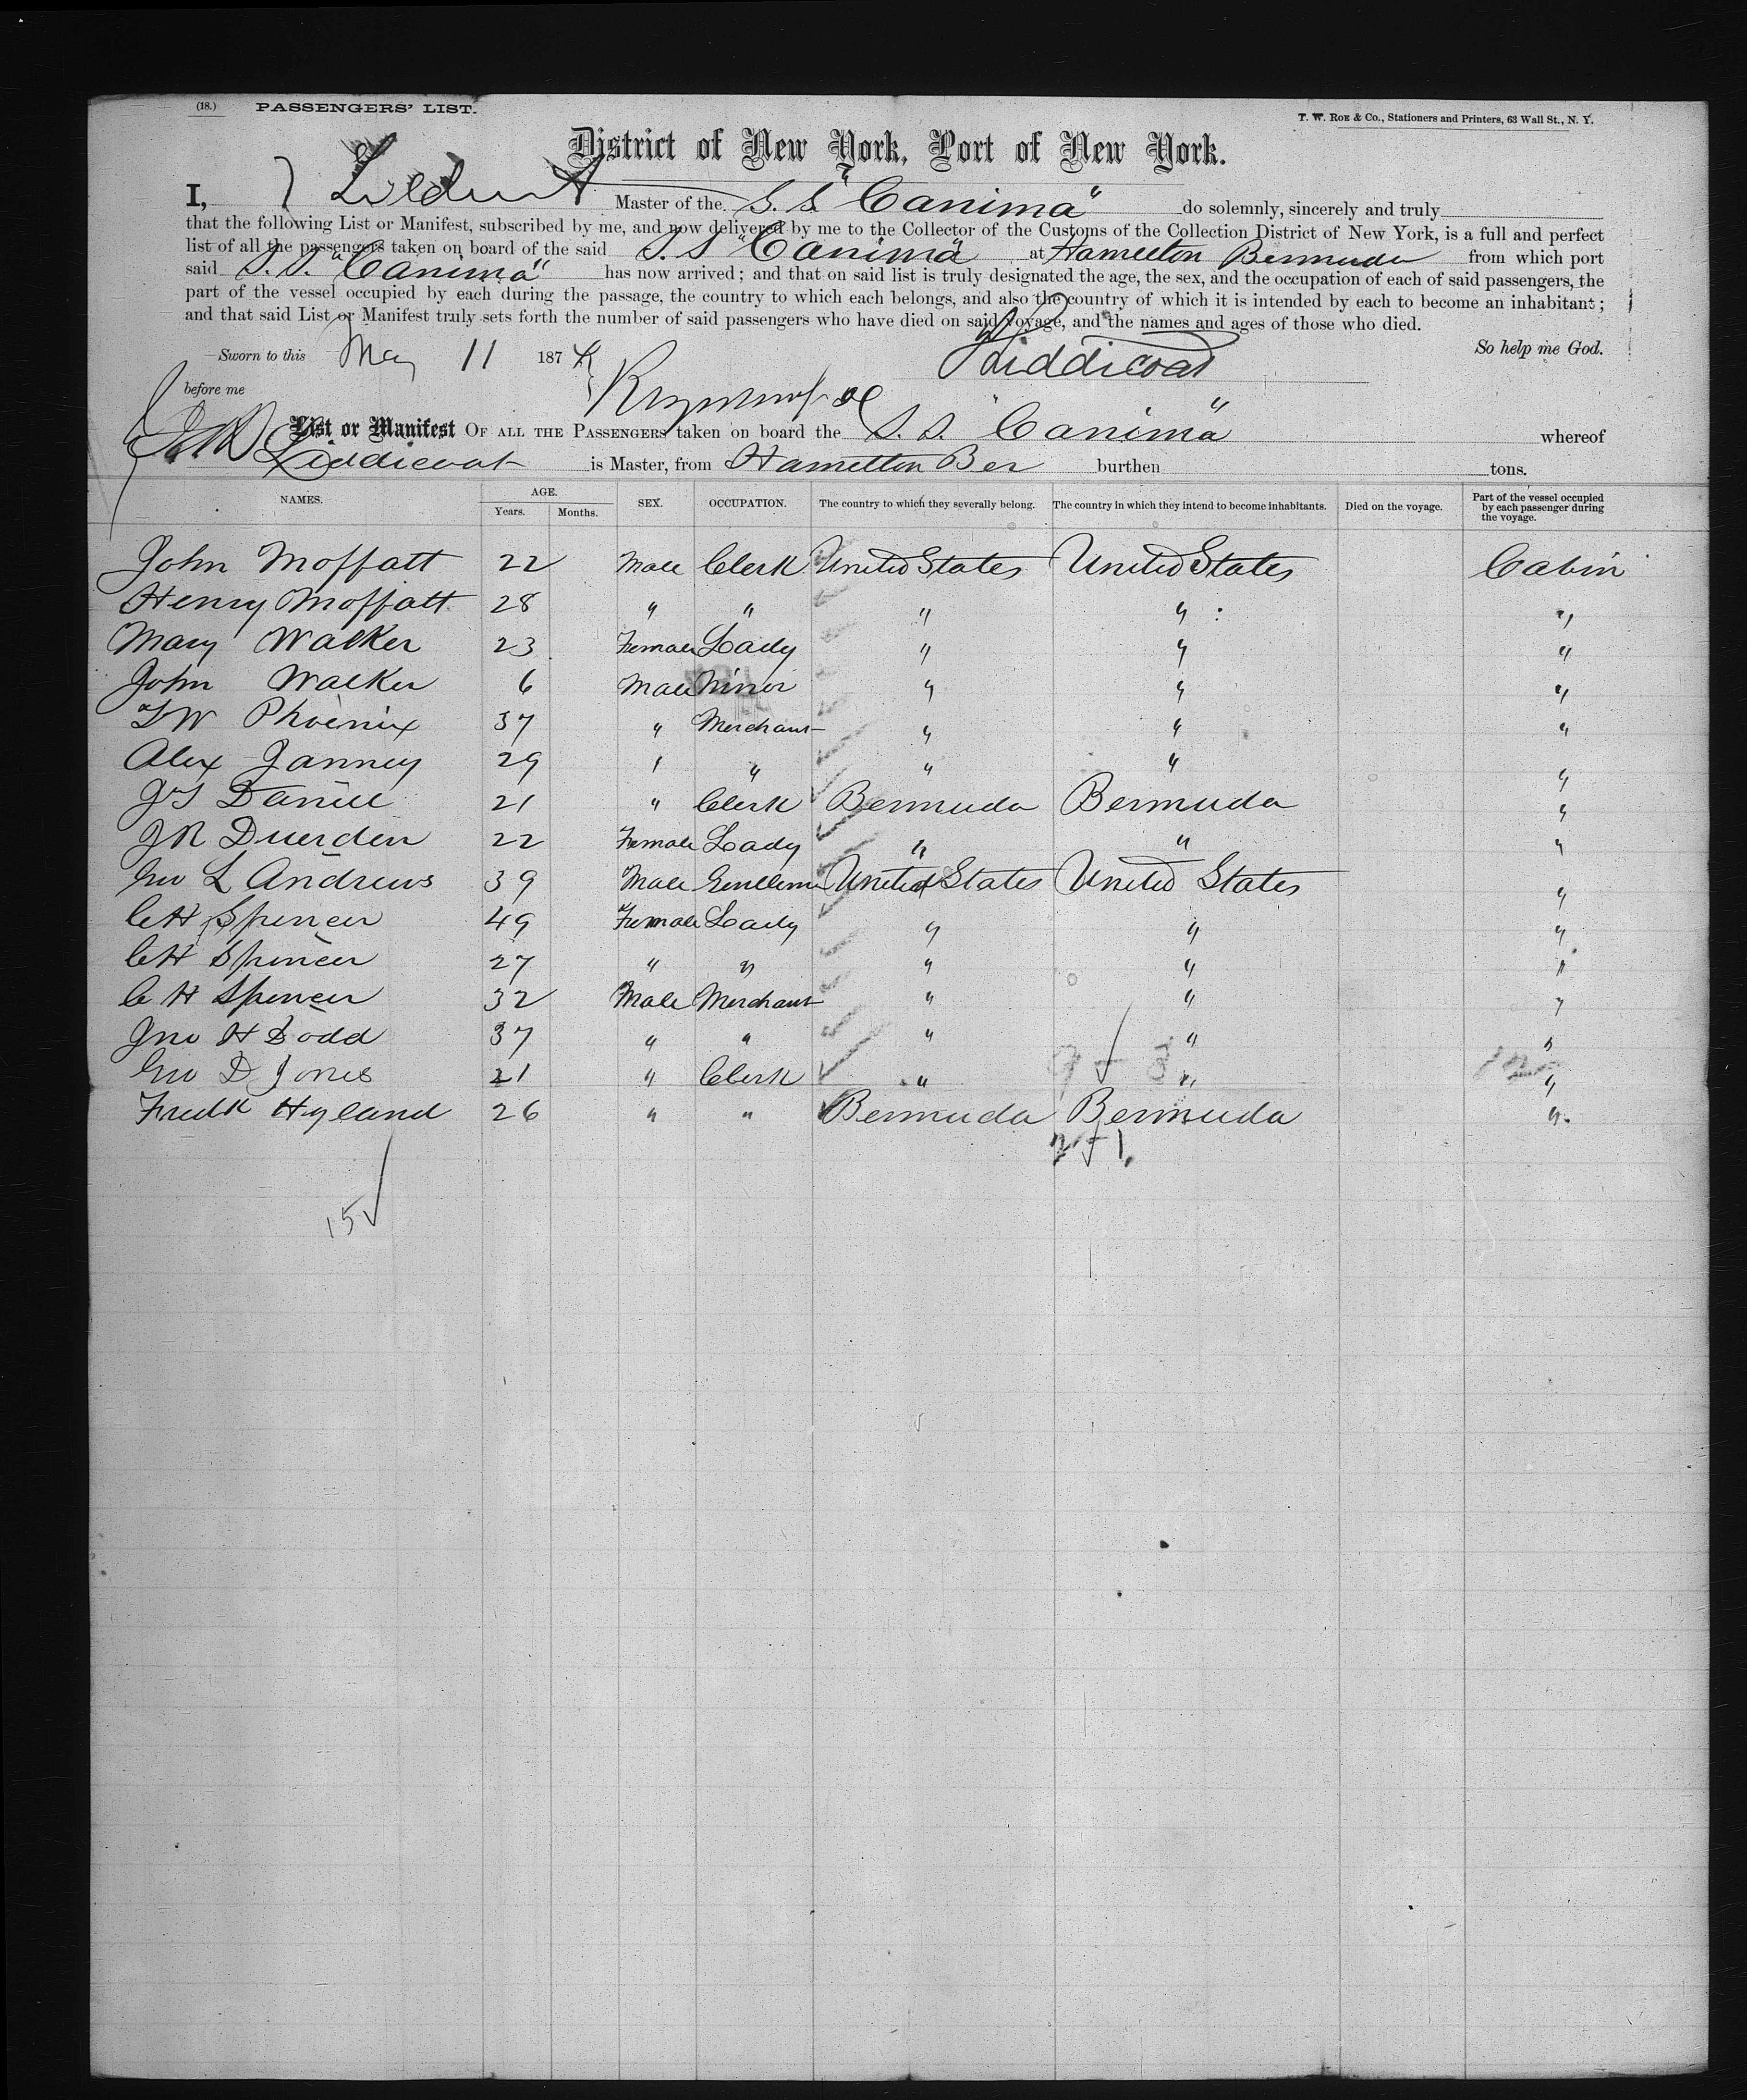 (18.) PASSENGERS' LIST.
T. W. ROE & Co., Stationers and Printers, 63 Wall St., N. Y.
District of New York, Port of New York.
I, Master of the S. S. "Canima" do solemnly, sincerely and truly
that the following List or Manifest, subscribed by me, and now delivered by me to the Collector of the Customs of the Collection District of New York, is a full and perfect
list of all the passengers taken on board of the said S. S "Canima" at Hamilton Bermuda from which port
said S. S. "Canima" has now arrived; and that on said list is truly designated the age, the sex, and the occupation of each of said passengers, the
part of the vessel occupied by each during the passage, the country to which each belongs, and also the country of which it is intended by each to become an inhabitant;
and that said List or Manifest truly sets forth the number of said passengers who have died on said voyage, and the names and ages of those who died.
Sworn to this May 11 1874 Liddicoat So help me God.
before me
List or Manifest OF ALL THE PASSENGERS taken on board the S. S. "Canima" whereof
Liddicoat is Master, from Hamilton Ber burthen tons.
NAMES. AGE. Years. Months. SEX. OCCUPATION. The country to which they severally belong. The country in which they intend to become inhabitants. Died on the voyage. Part of the vessel occupied by each passenger during the voyage.
John Moffatt 22 Male Clerk United States United States Cabin
Henry Moffatt 28 " " " " "
Mary Walker 23 Female Lady " " "
John Walker 6 Male Minor " " "
W Phoenix 37 " Merchant " " "
Alex Janney 29 " " " " "
Daniel 21 " Clerk Bermuda Bermuda "
JR Duerden 22 Female Lady " " "
Geo L Andrews 39 Male Gentleman United States United States "
CH Spencer 49 Female Lady " " "
CH Spencer 27 " " " " "
C H Spencer 32 Male Merchant " " "
Jno H Dodd 37 " " " " "
Geo D Jones 21 " Clerk " " "
Fredk Hyland 26 " " Bermuda Bermuda "
15